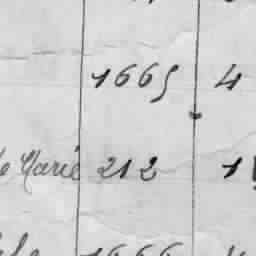 1665 4
Marie 212 1
1666